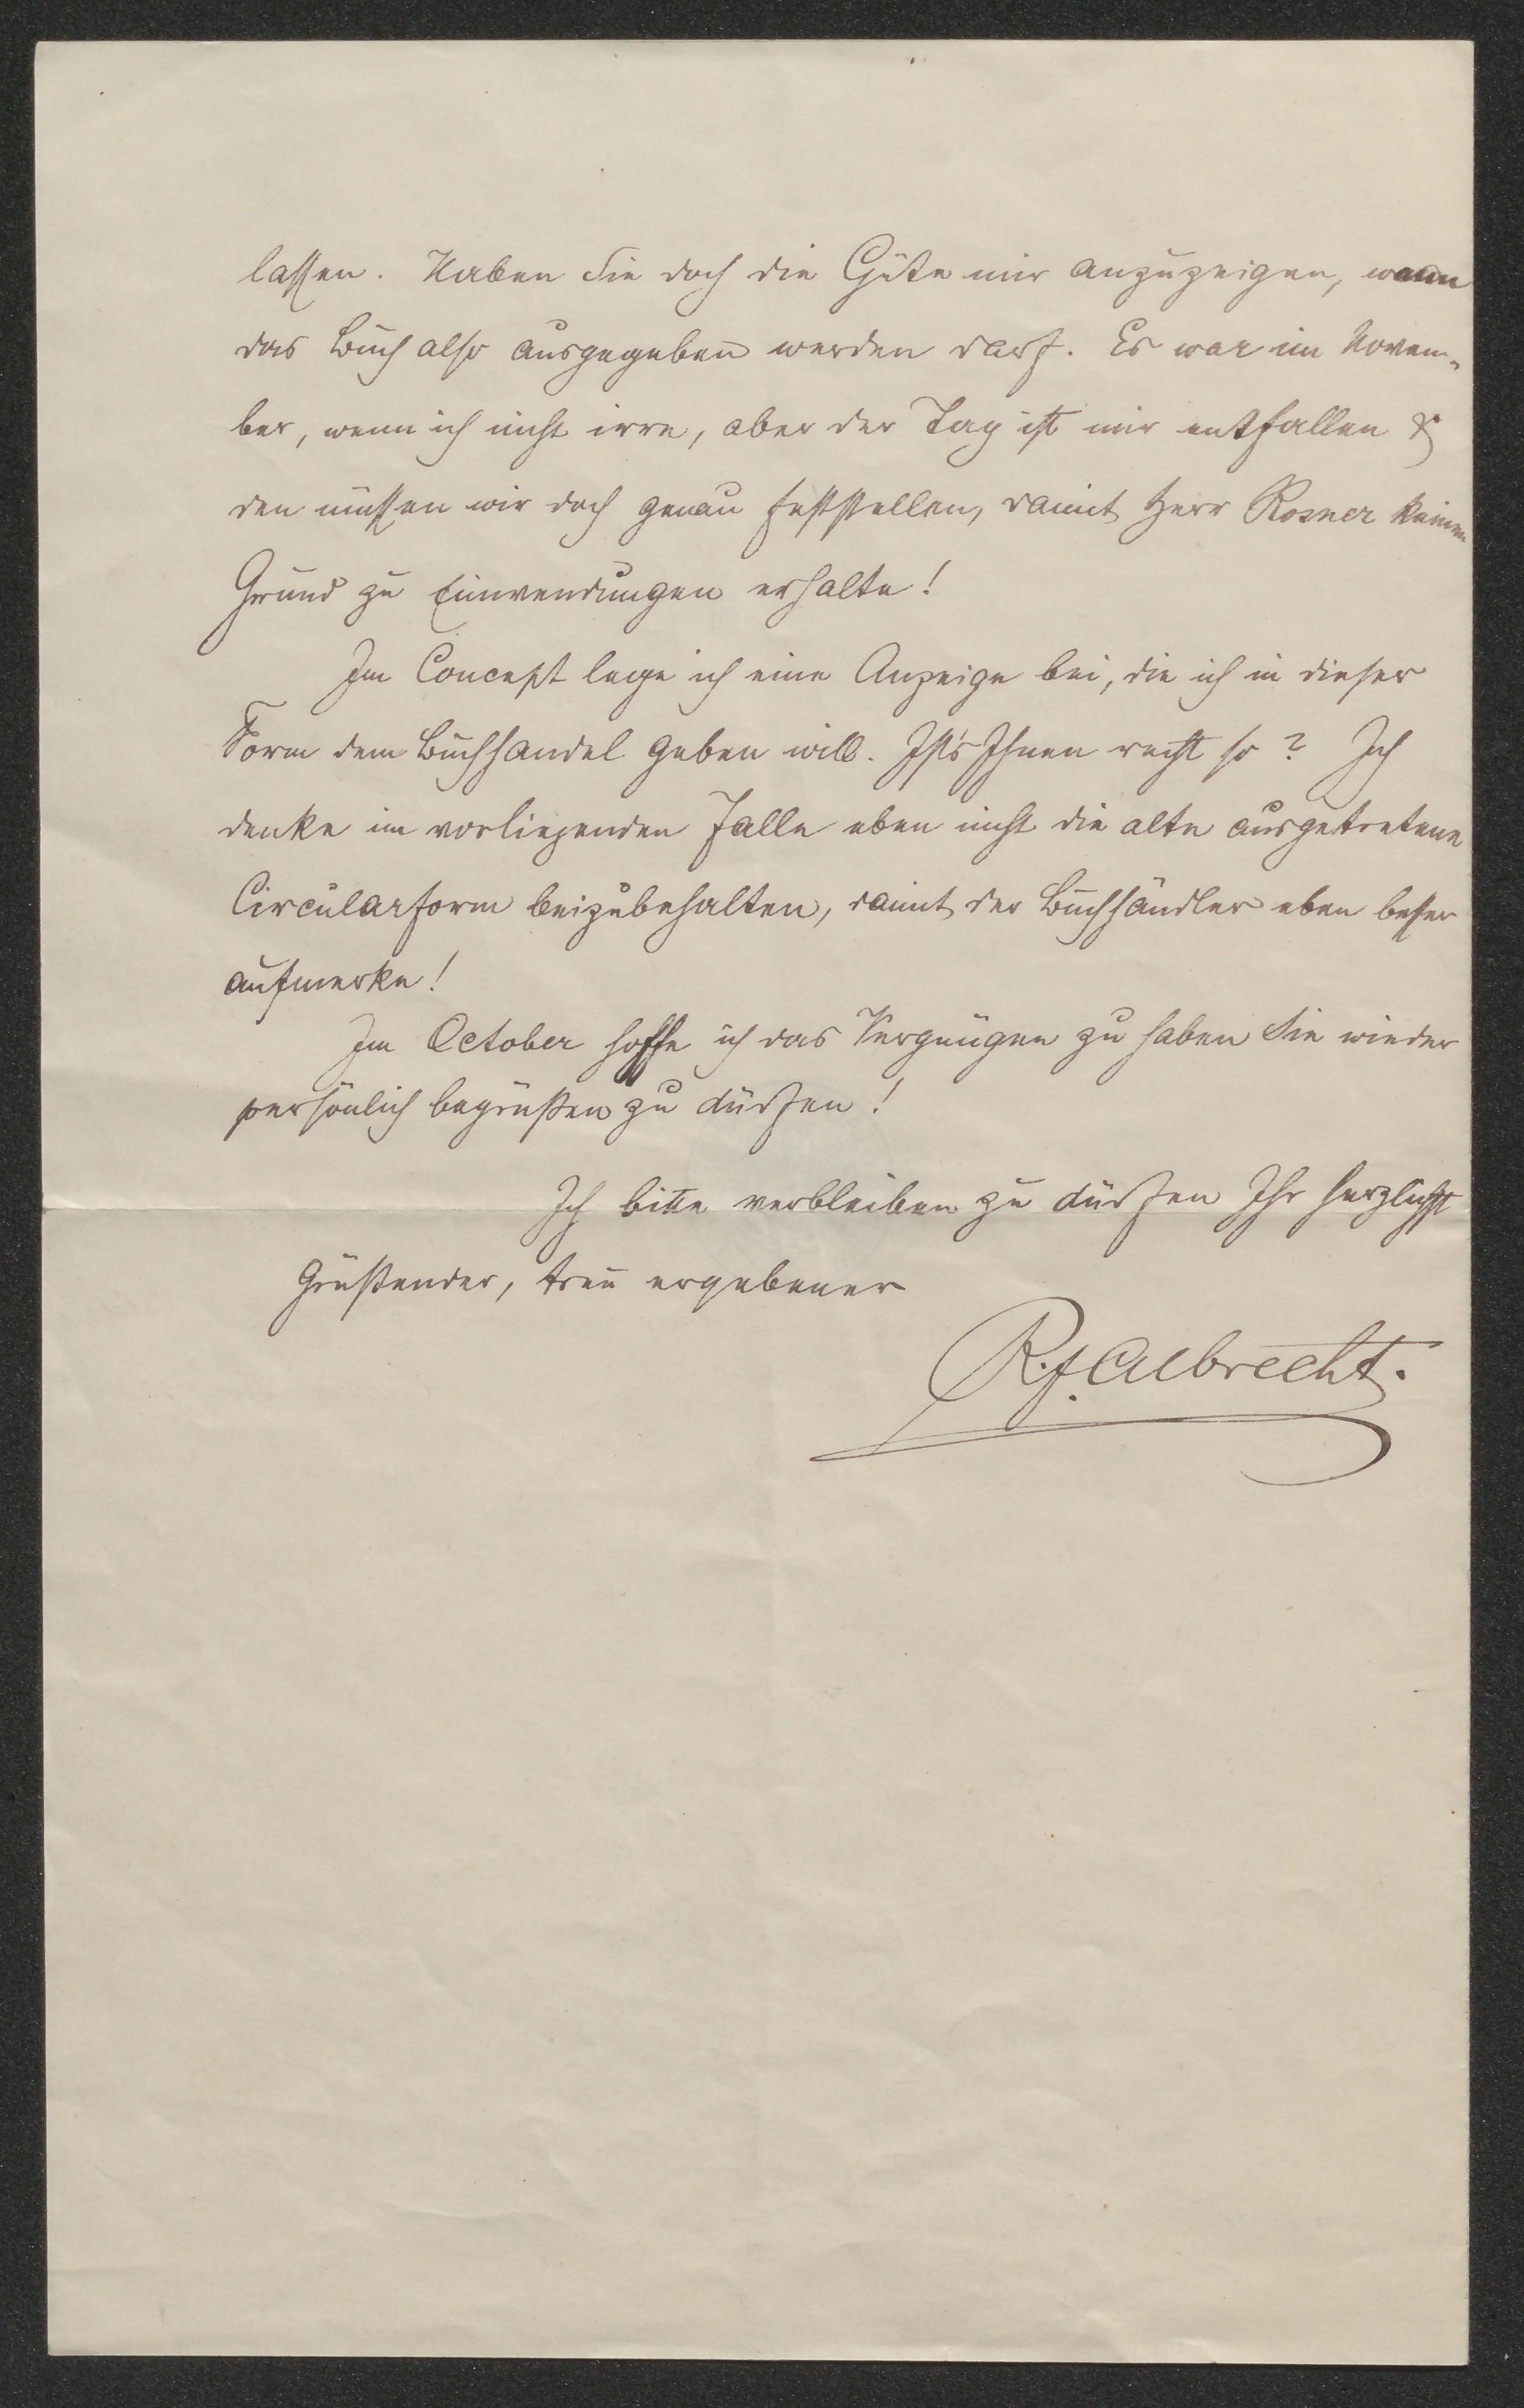 lassen. Haben Sie doch die Güte mir anzuzeigen, wann
das Buch also ausgegeben werden darf. Es war im Novem-
ber, wenn ich nicht irre, aber der Tag ist mir entfallen &
den müssen wir doch genau feststellen, damit Herr Rosner keinen
Grund zu Einwendungen erhalte!
Im Concept lege ich eine Anzeige bei, die ich in dieser
Form dem Buchhandel geben will. Ist's Ihnen recht so? Ich
denke im vorliegenden Falle eben nicht die alte ausgetretene
Circularform beizubehalten, damit der Buchhändler eben besser
aufmerke!
Im October hoffe ich das Vergnügen zu haben Sie wieder
persönlich begrüßen zu dürfen!
Ich bitte verbleiben zu dürfen Ihr herzlichst
Grüßender, treu ergebener
R. f. Albrecht.